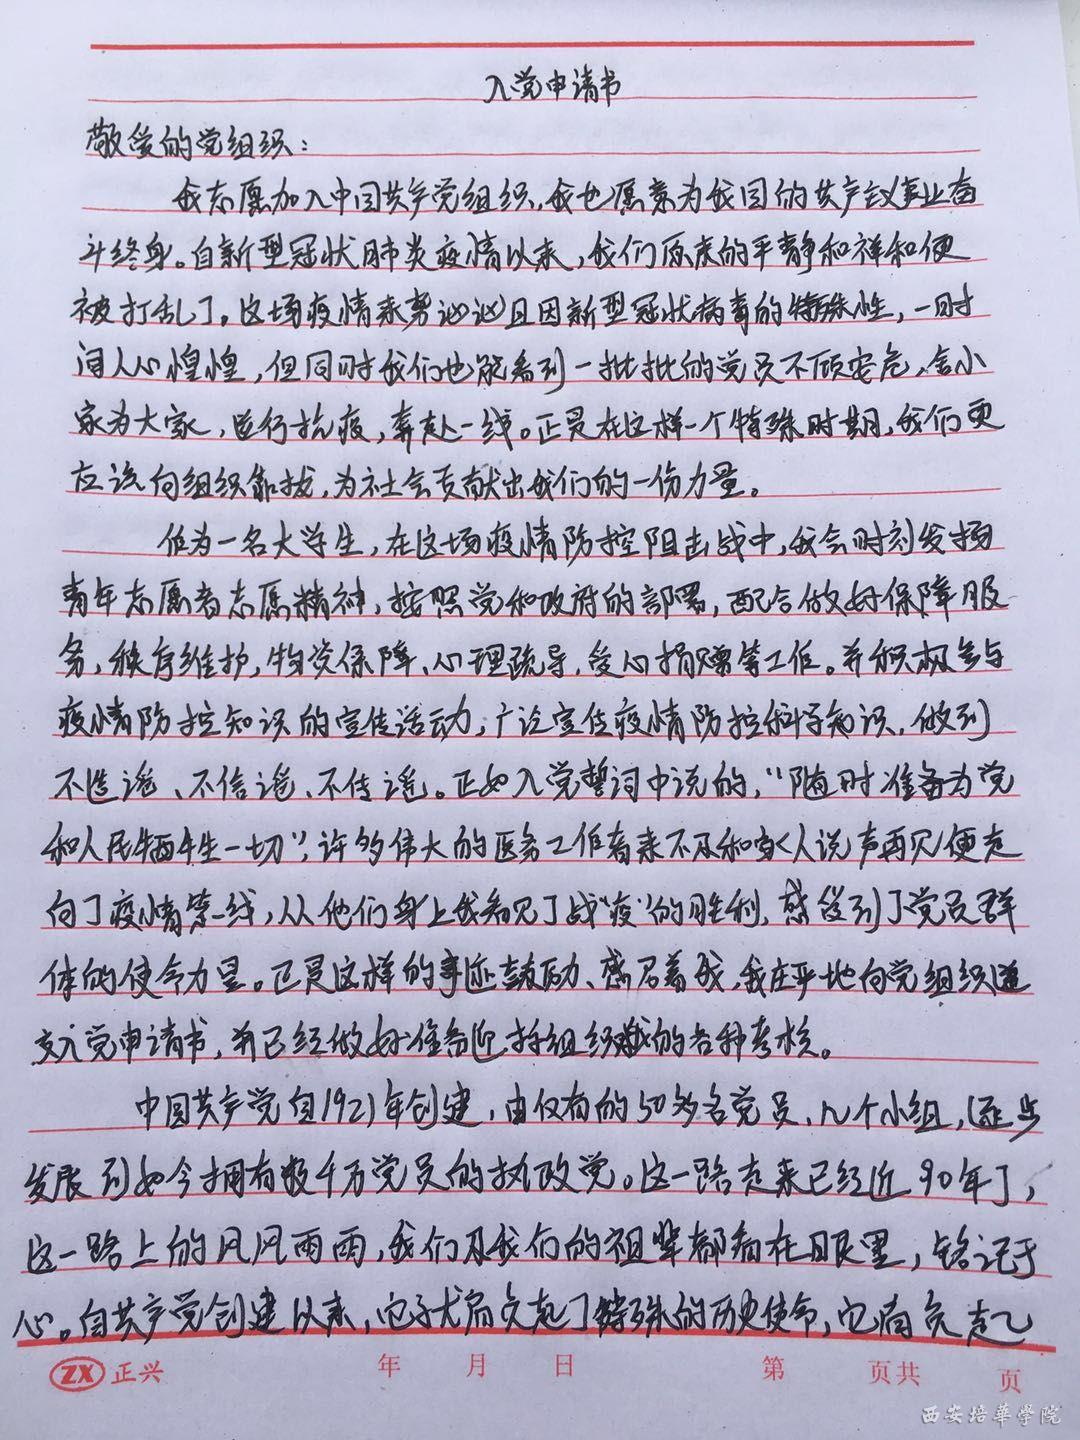 入党申请书
敬爱的党组织：
我志愿加入中国共产党组织，我也愿意为我国的共产主义事业奋
斗终身。自新型冠状肺炎疫情以来，我们原来的平静和祥和便
被打乱了。这场疫情来势汹汹且因新型冠状病毒的特殊性，一时
间人心惶惶，但同时我们也能看到一批批的党员不顾安危，舍小
家为大家，进行抗疫，奔赴一线。正是在这样一个特殊时期，我们更
应该向组织靠拢，为社会贡献出我们的一份力量。
作为一名大学生，在这场疫情防控阻击战中，我会时刻发扬
青年志愿者志愿精神，按照党和政府的部署，配合做好保障服
务，秩序维护，物资保障、心理疏导，爱心捐赠等工作。并积极参与
疫情防控知识的宣传活动，广泛宣传疫情防控科学知识，做到
不造谣、不信谣、不传谣。正如入党誓词中说的，“随时准备为党
和人民牺牲一切”，许多伟大的医务工作者来不及和家人说声再见便走
向了疫情第一线，从他们身上我看见了战“疫”的胜利，感受到了党员群
体的使命力量。正是这样的事迹鼓励、感召着我，我庄严地向党组织递
交入党申请书，并已经做好准备迎接组织对我的各种考核。
中国共产党自1921年创建，由仅有的50多名党员，几个小组，逐步
发展到如今拥有数千万党员的执政党。这一路走来已经近90年了，
这一路上的风风雨雨，我们及我们的祖辈都看在眼里，铭记于
心。自共产党创建以来，它予以肩负起了特殊的历史使命，它肩负起
ZX 正兴 年 月 日 第 页共 页
西安培華学院